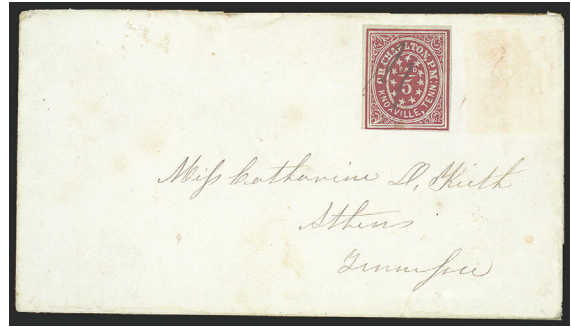 C.H. CHARLTON, P.M.
PAID
5
KNOXVILLE, TENN.
Miss Catharine D, Keith
Athens
Tennessee